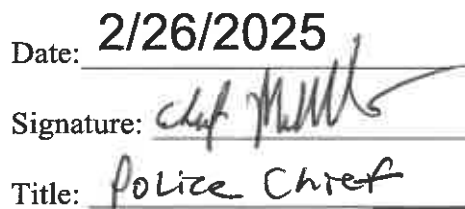 Date: 2/26/2025
Signature: Chief
Title: Police Chief